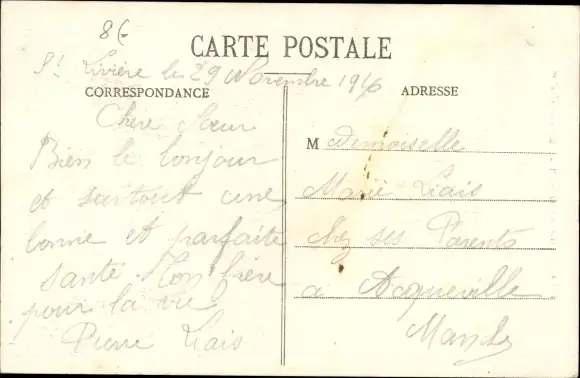 8
CARTE POSTALE
St Livière le 29 Novembre 1916
CORRESPONDANCE
ADRESSE
Chère Sœur
Bien le bonjour
et surtout une
bonne et parfaite
santé. Mon frère
pour la vie
Pierre Liais
M ademoiselle
Marie Liais
chez ses Parents
a Acqueville
Manche